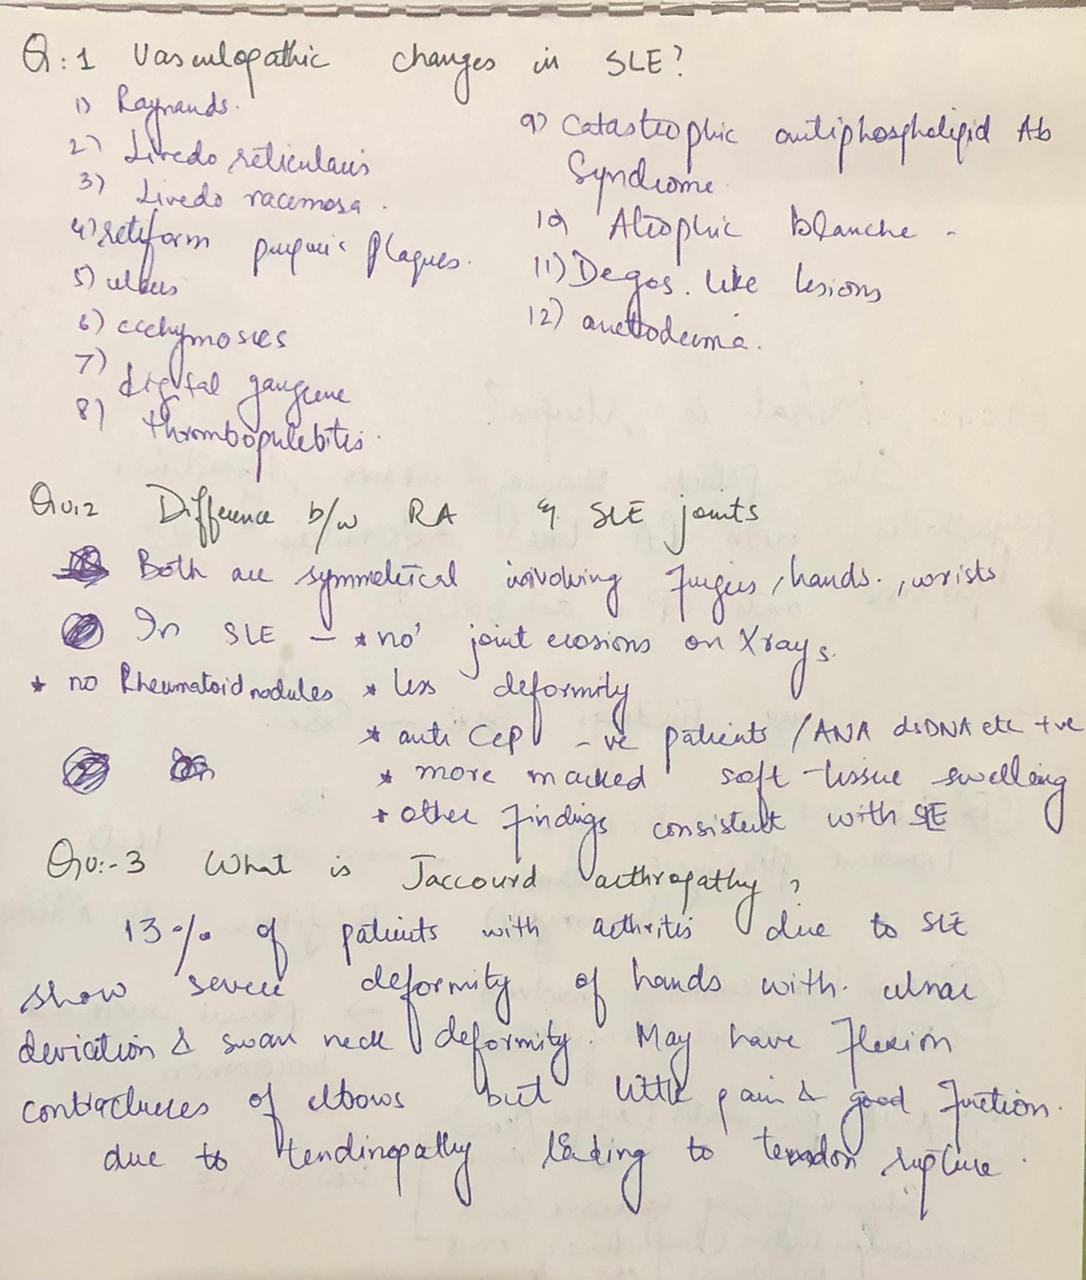 Q:1 Vasculopathic changes in SLE?
1) Raynauds.
2) Livedo reticularis
3) Livedo racemosa.
4) retiform purpuric plaques.
5) ulcers
6) ecchymosies
7) digital gangrene
8) thrombophlebitis.
9) Catastrophic antiphospholipid Ab
Syndrome.
10) Atrophic blanche -
11) Degos. like lesions
12) anettoderma.
Qu:2 Difference b/w RA & SLE joints
Both are symmetrical involving fingers, hands., wrists
In SLE - * no joint erosions on Xrays.
* no Rheumatoid nodules * less deformity
* anti CCP -ve patients / ANA dsDNA etc +ve
* more marked soft-tissue swelling
* other findings consistent with SLE
Qu:-3 What is Jaccourd arthropathy?
13% of patients with arthritis due to SLE
show severe deformity of hands with. ulnar
deviation & swan neck deformity. May have flexion
contractures of elbows but little pain & good fuction.
due to tendinopathy leading to tendon rupture.